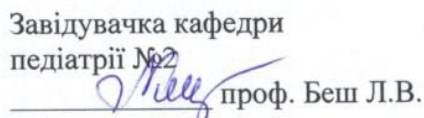 Завідувачка кафедри
педіатрії №2
проф. Беш Л.В.